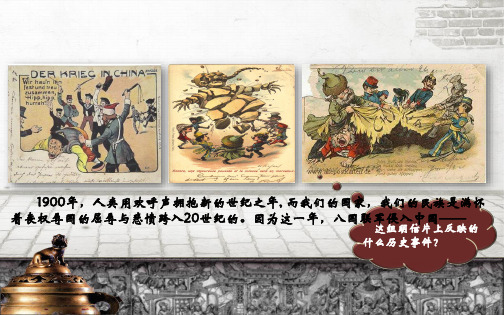 DER KRIEG IN CHINA
Wir hau'n ihn
fest und treu
zusammen,
1900年，人类用欢呼声拥抱新的世纪之年,而我们的国家，我们的民族是满怀
着丧权辱国的屈辱与悲愤跨入20世纪的。因为这一年，八国联军侵入中国——
这组明信片上反映的
什么历史事件？